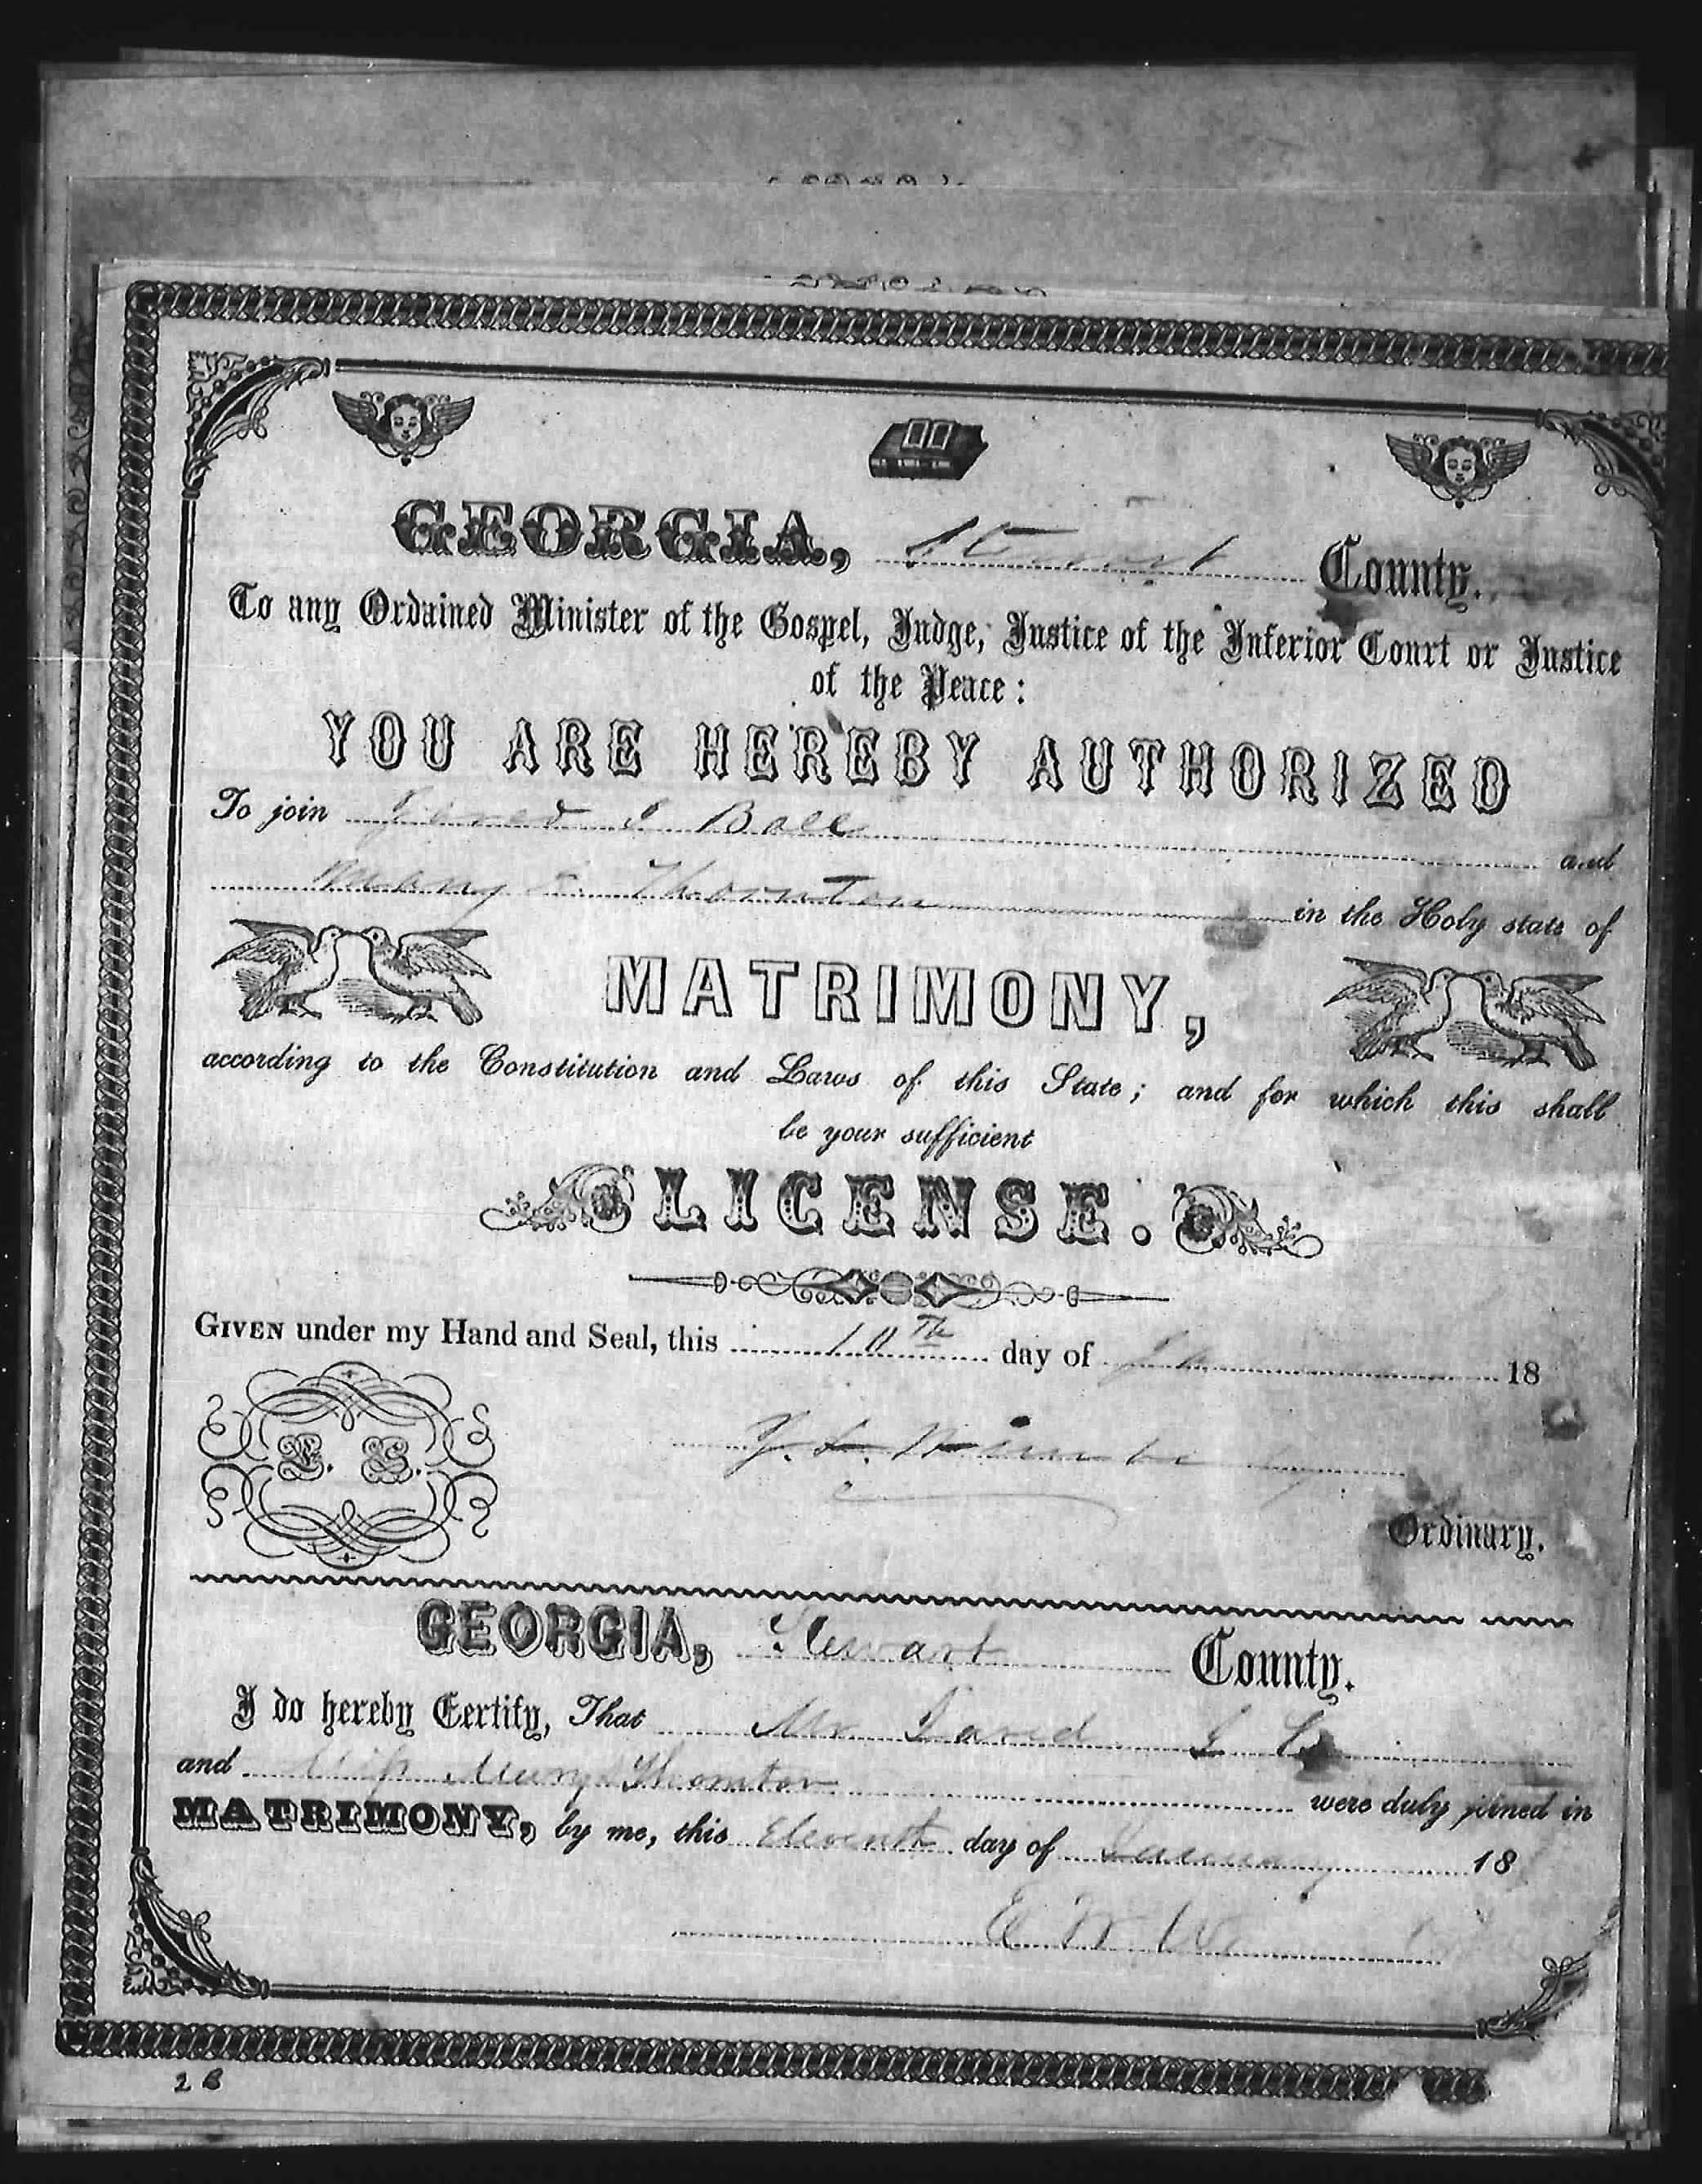 GEORGIA, Stewart County.
To any Ordained Minister of the Gospel, Judge, Justice of the Inferior Court or Justice
of the Peace:
YOU ARE HEREBY AUTHORIZED
To join J Ball and
Mary Thornton in the Holy state of
MATRIMONY,
according to the Constitution and Laws of this State; and for which this shall
be your sufficient
LICENSE.
GIVEN under my Hand and Seal, this 10th day of 18
L. S.
Ordinary.
GEORGIA, Stewart County.
I do hereby Certify, That Mr David J
and Miss Mary Thornton were duly joined in
MATRIMONY, by me, this Eleventh day of January 18
E W